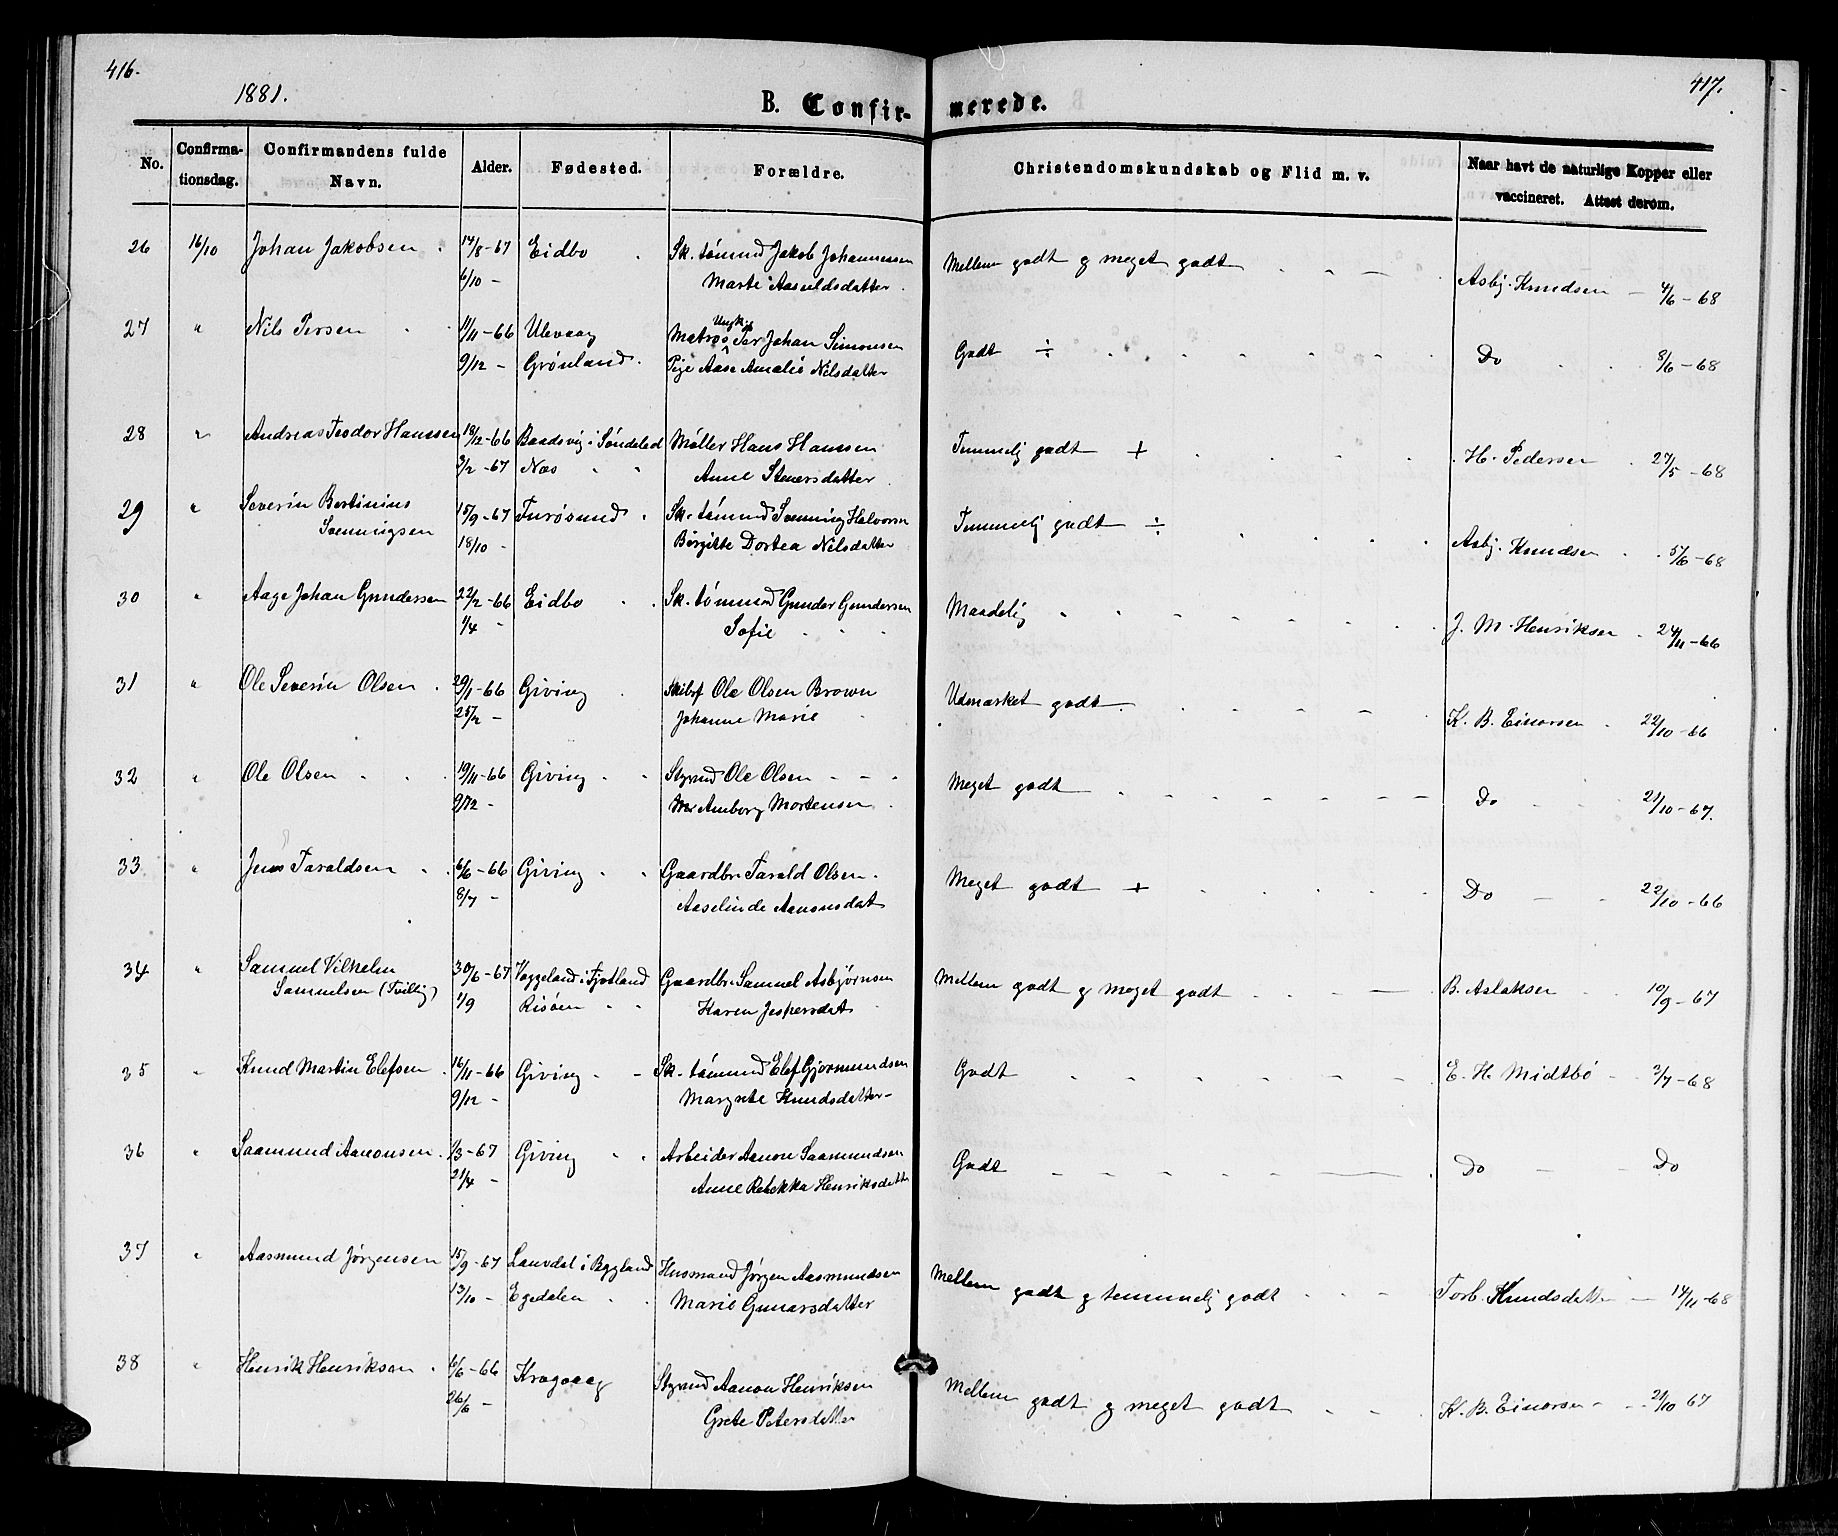 416.
417.
1881.
B. Confirmerede.
No. | Confirmationsdag. | Confirmandens fulde Navn. | Alder. | Fødested. | Forældre. | Christendomskundskab og Flid m. v. | Naar havt de naturlige Kopper eller vaccineret. Attest derom.
26 | 16/10 | Johan Jakobsen | 14/8-67 | Eidbo | Sk. tømmd Jakob Johannessen | Mellem godt g meget godt | Asbj. Knudsen - 4/6-68
6/10 - | Marte Aasuldsdatter
27 | " | Nils Persen | 11/11-66 | Ulevaag | Ungk. Matros Per Johan Simonsen | Godt ÷ | Do 8/6-68
9/12 - | Grønland | Pige Aase Amalie Nilsdatter
28 | " | Andreas Teodor Hanssen | 18/12-66 | Baadsvig i Søndeled | Møller Hans Hanssen | Temmelig godt + | H. Pedersen 27/5-68
3/2-67 | Næs | Anne Stenersdatter
29 | " | Severin Bertinius | 15/9-67 | Furøsund | Sk. tømmd Svenning Halvorsen | Temmelig godt ÷ | Asbj. Knudsen 5/6-68
Svenningsen | 18/10 - | Birgitte Dortea Nilsdatter
30 | " | Aage Johan Gundersen | 22/2-66 | Eidbo | Sk. tømmd Gunder Gundersen | Maadelig | J. M. Henriksen 24/11-66
1/4 - | Sofie
31 | " | Ole Severin Olsen | 29/1-66 | Giving | Skibsf Ole Olsen Brown | Udmærket godt | K. B. Einarsen 22/10-66
25/2 - | Johanne Marie
32 | " | Ole Olsen | 19/11-66 | Giving | Styrmd Ole Olsen | Meget godt | Do 21/10-67.
9/12 - | Amborg Mortensen
33 | " | Jens Taraldsen | 6/6-66 | Giving | Gaardbr. Tarald Olsen | Meget godt + | Do 22/10-66
8/7 - | Aaselinde Aanonsdat
34 | " | Samuel Vilhelm | 30/6-67 | Vaggeland i Fjotland | Gaardbr. Samuel Asbjørnsen | Mellem godt g meget godt | B. Aslaksen 10/9-67
Samuelsen (Tvilling) | 1/9 | Risøen | Karen Jespersdat
35 | " | Knud Martin Elefsen | 16/11-66 | Giving | Sk. tømmd Elef Gjermundsen | Godt | E. H. Midtbø 2/7-68
9/12 - | Margrete Knudsdatter
36 | " | Saamund Aanonsen | 1/3-67 | Giving | Arbeider Aanon Saamundsen | Godt | Do - Do
21/4 - | Anne Rebekka Henriksdatt
37 | " | Aasmund Jørgensen | 15/9-67 | Lauvdal i Bygland | Husmand Jørgen Aasmundsen | Mellem godt g temmelig godt | Torb. Knudsdatter - 14/11-68
13/10 - | Egedalen | Marie Gunarsdatter
38 | " | Henrik Henriksen | 6/6-66 | Kragvaag | Styrmd Aanon Henriksen | Mellem godt g meget godt | K. B. Einarsen - 21/10 67
26/6 - | Grete Petersdatter